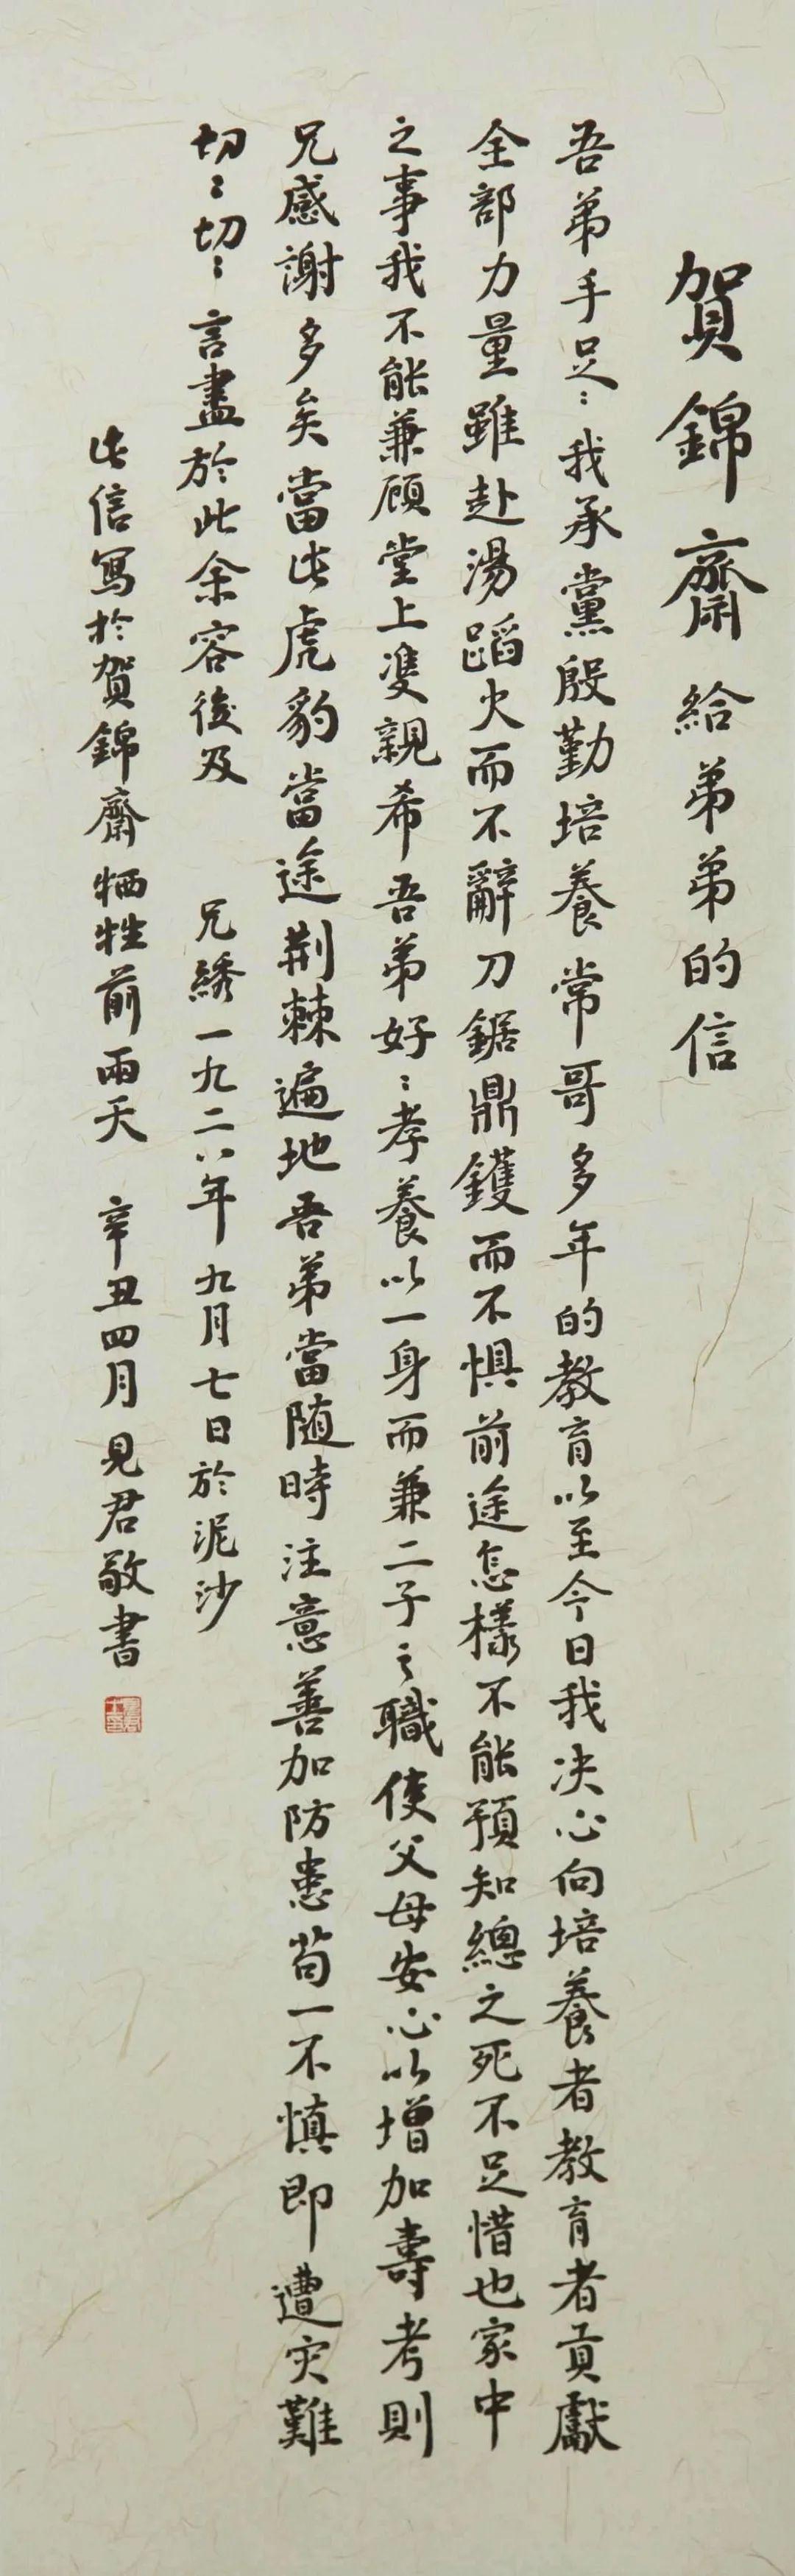 賀錦齋給弟弟的信
吾弟手足:我承黨殷勤培養常哥多年的教育以至今日我决心向培養者教育者貢獻
全部力量雖赴湯蹈火而不辭刀鋸鼎鑊而不惧前途怎樣不能預知總之死不足惜也家中
之事我不能兼顧堂上雙親希吾弟好〻孝養以一身而兼二子之職使父母安心以增加壽考則
兄感謝多矣當此虎豹當途荆棘遍地吾弟當随時注意善加防患苟一不慎即遭灾難
切〻切〻言盡於此余容後及 兄綉一九二八年九月七日於泥沙
此信寫於賀錦齋牺牲前兩天 辛丑四月見君敬書